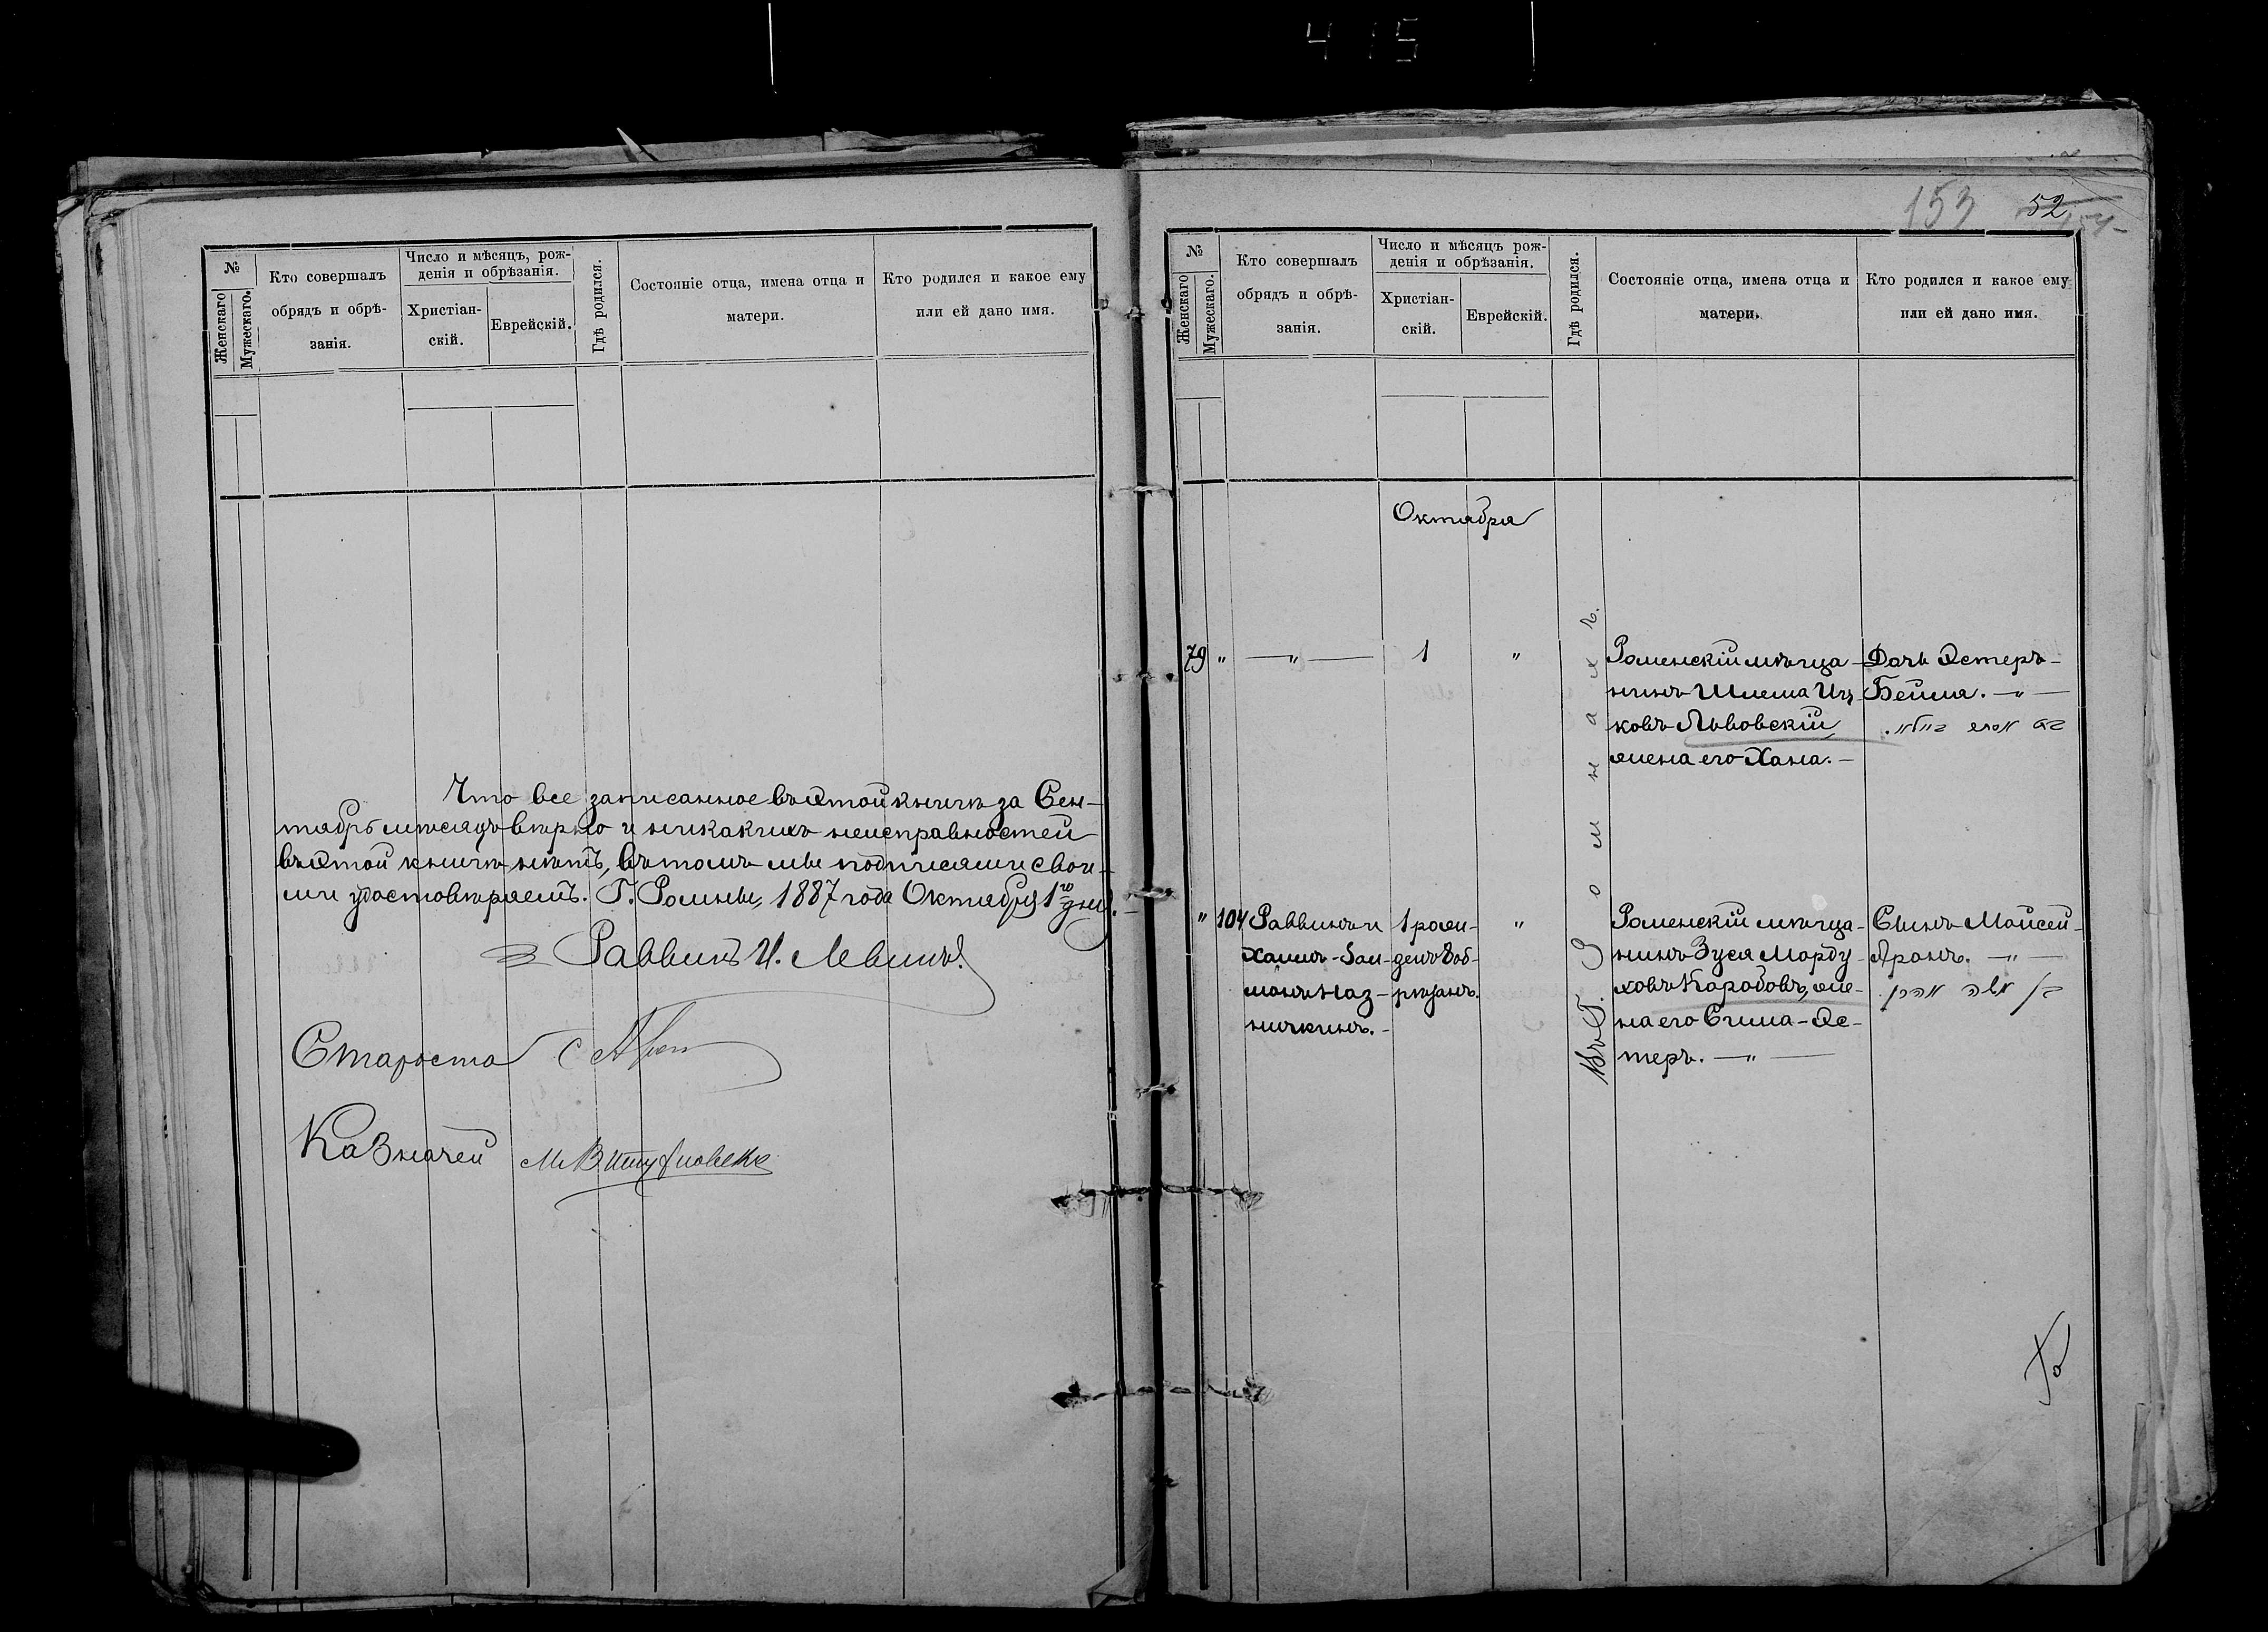 415
№
Женскаго
Мужескаго.
Кто совершалъ
обрядъ и обрѣ-
занія.
Число и мѣсяцъ, рож-
денія и обрѣзанія.
Христіан-
скій.
Еврейскій.
Гдѣ родился.
Состояніе отца, имена отца и
матери.
Кто родился и какое ему
или ей дано имя.
Что все записанное въ этой книгѣ за Сен-
тябрь мѣсяцъ вѣрно и никакихъ неисправностей
въ этой книгѣ нѣтъ, въ томъ мы подписями свои-
ми удостовѣряемъ. Г. Ромны, 1887 года Октября 1го дня.
Раввинъ И. Левинъ.
Староста
Казначей
153 52
№
Женскаго
Мужескаго.
Кто совершалъ
обрядъ и обрѣ-
занія.
Число и мѣсяцъ рож-
денія и обрѣзанія.
Христіан-
скій.
Еврейскій.
Гдѣ родился.
Состояніе отца, имена отца и
матери.
Кто родился и какое ему
или ей дано имя.
Октября
Въ Г. Ромнахъ.
79 " — " — 1 "
Роменскій мѣща-
нинъ Шлема Иц-
ковъ Львовскій
жена его Хана. —
Дочь Эстеръ-
Бейла. — " —
בת אסתר ביילא.
" 104
Раввинъ и
Хаимъ-Зал-
манъ Наз-
ничкинъ. -
1 рож-
денъ 8 об-
рѣзанъ.
"
Роменскій мѣща-
нинъ Зуся Морду-
ховъ Коробовъ, же-
на его Сима-Эс-
теръ. — " —
Сынъ Мойсей-
Аронъ. — " —
בן משה אהרן.